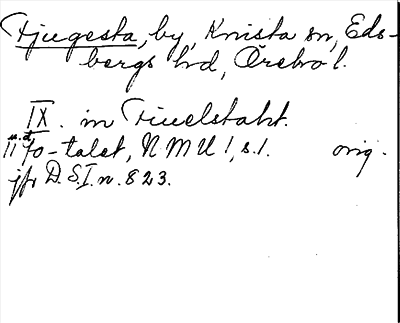 Tjugesta, by, Knista sn, Eds-
bergs hd, Örebro l.
IX. in Tiuelstaht.
u.d.
1170-talet, N M U 1, s. 1. orig.
jfr D.S.I. n. 823.